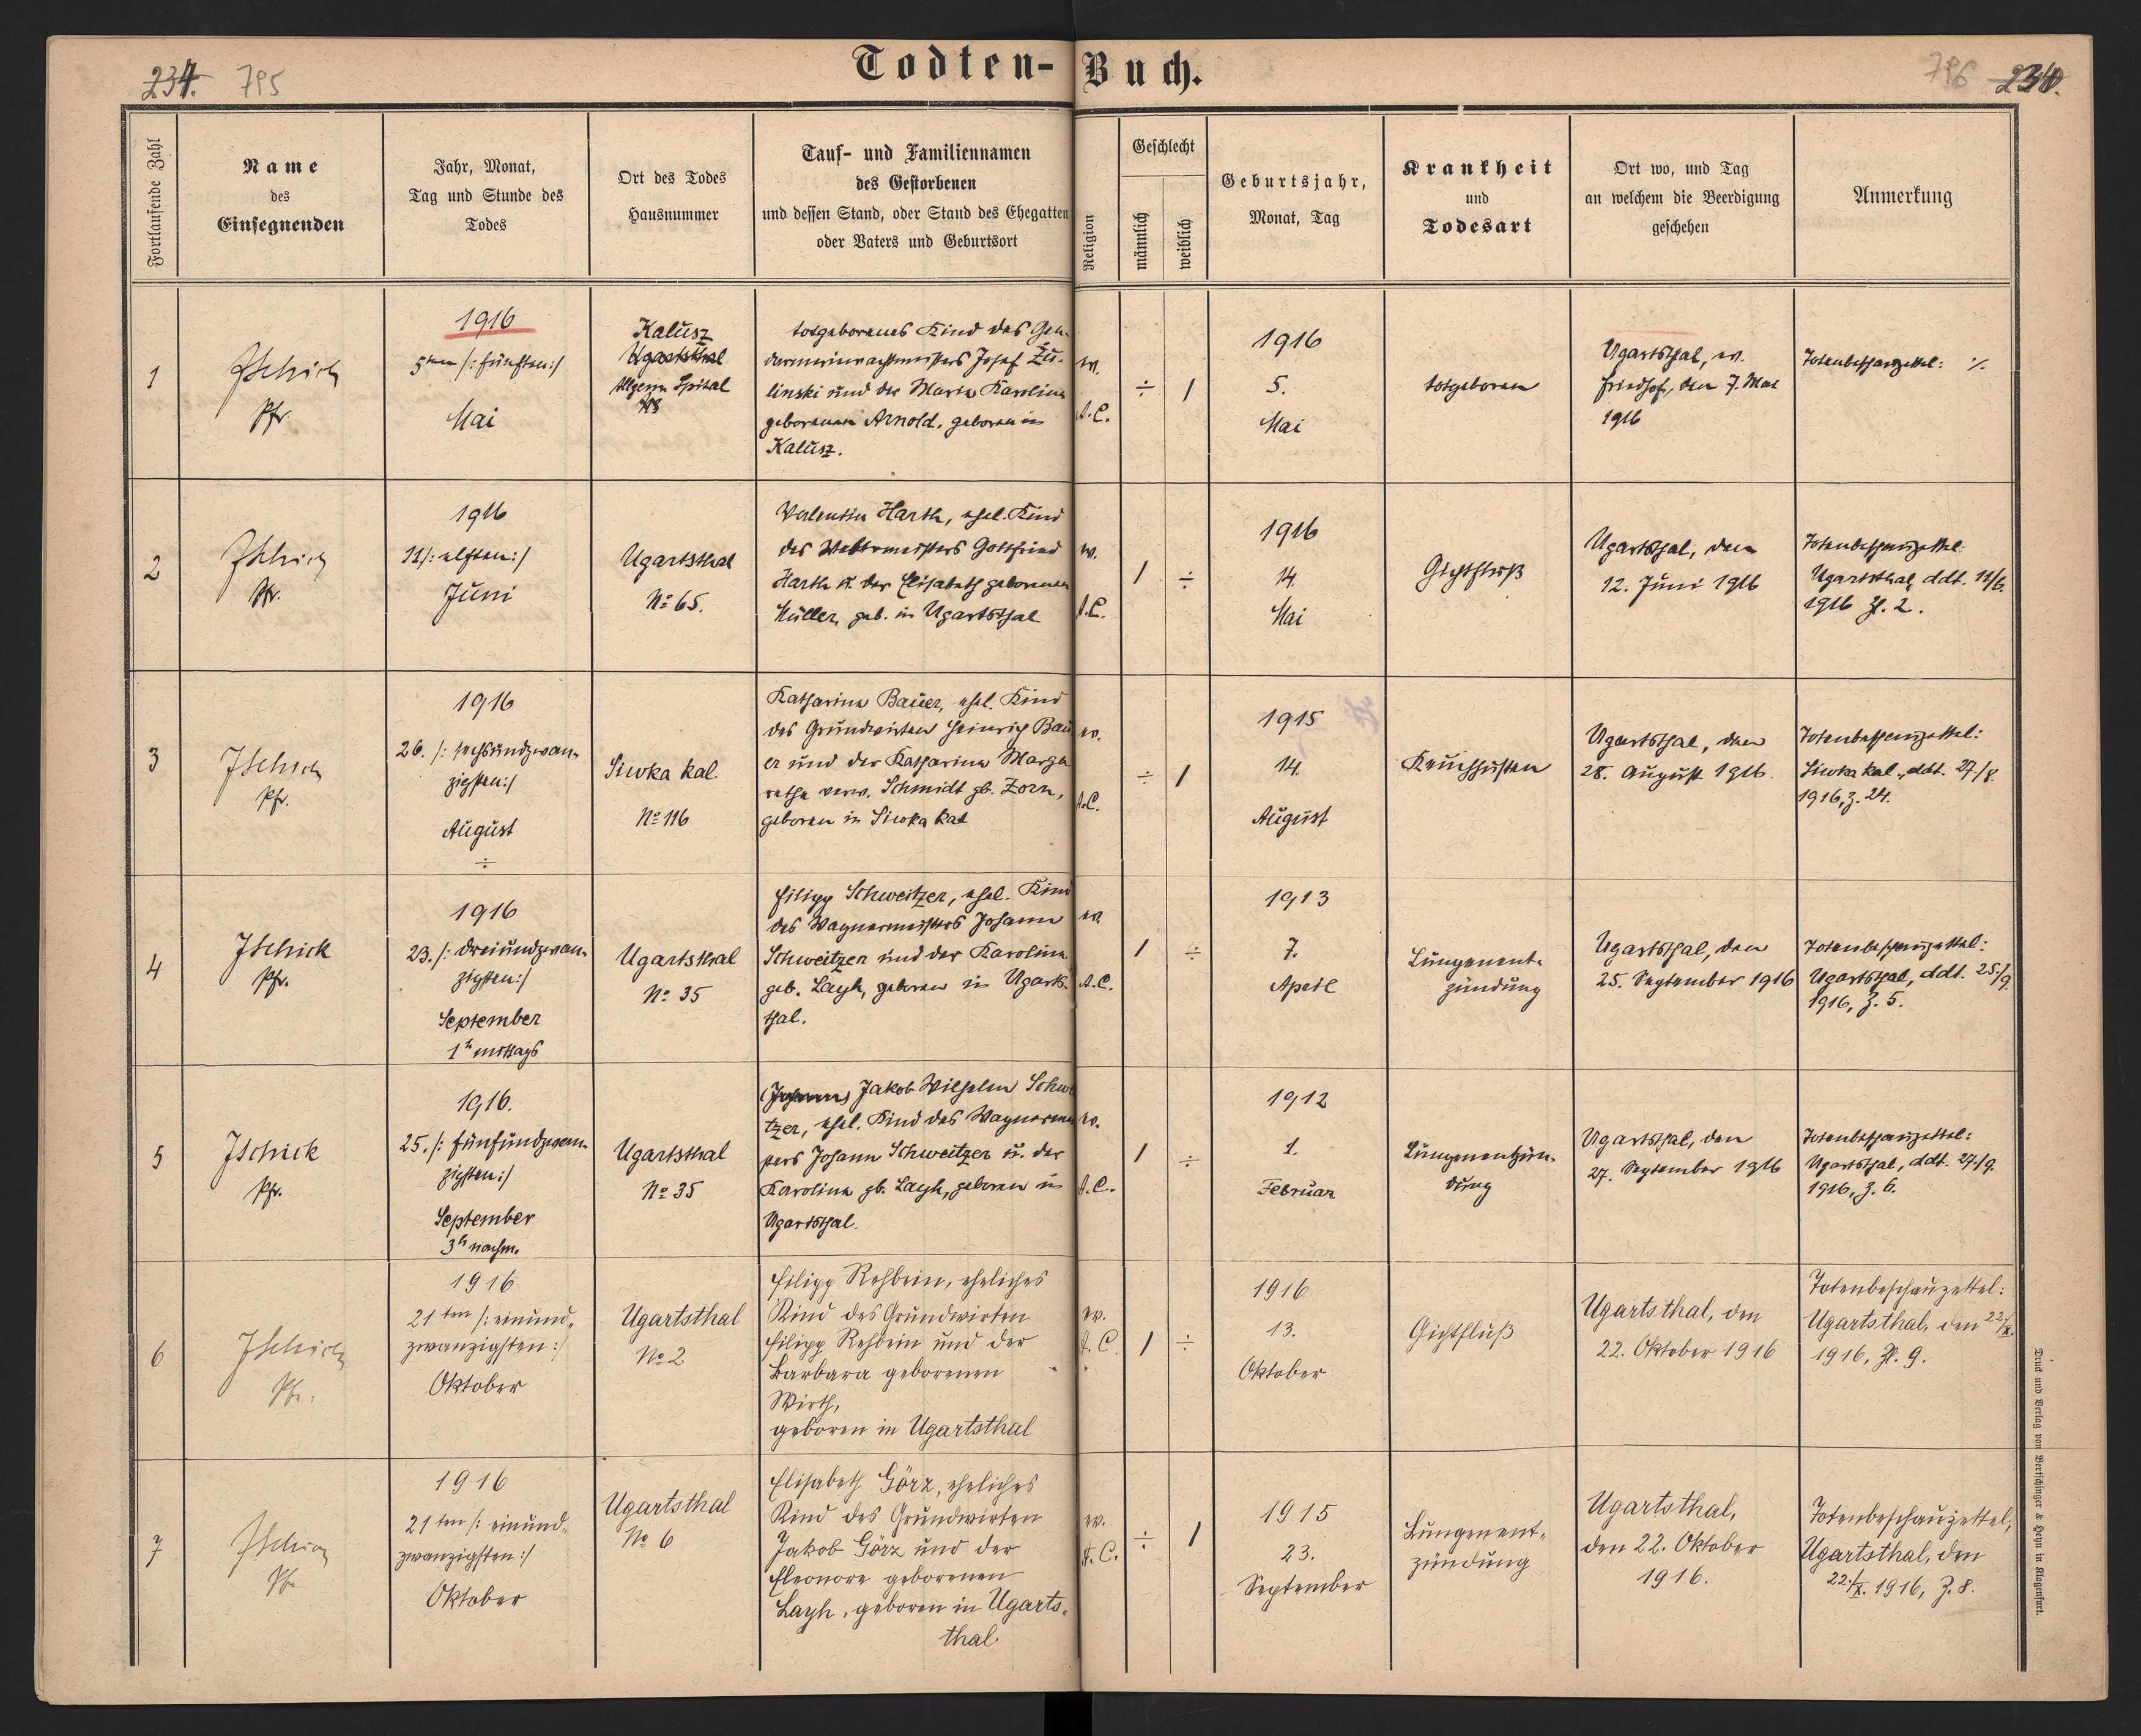 Todten-Buch.
234. 795
796 234.
Fortlaufende Zahl
Name
des
Einsegnenden
Jahr, Monat,
Tag und Stunde des
Todes
Ort des Todes
Hausnummer
Tauf- und Familiennamen
des Gestorbenen
und dessen Stand, oder Stand des Ehegatten
oder Vaters und Geburtsort
Religion
Geschlecht
männlich
weiblich
Geburtsjahr,
Monat, Tag
Krankheit
und
Todesart
Ort wo, und Tag
an welchem die Beerdigung
geschehen
Anmerkung
1
Pfr.
1916
5ten /:fünften:/
Mai
Kalusz
Ugartsthal
Allgem Spital
totgeborenes Kind des Gen-
darmeriewachtmeisters Josef Zu-
linski und der Maria Karolina
geborenen Arnold, geboren in
Kalusz.
ev.
A.C.
÷ 1
1916
5.
Mai
totgeboren
Ugartsthal, ev.
Friedhof, den 7. Mai
1916
Totenbeschauzettel: %
2
Pfr.
1916
11/: elften:/
Juni
Ugartsthal
№ 65.
Valentin Harth, ehel. Kind
des Webermeisters Gottfried
Harth u. der Elisabeth geborenen
Müller, geb. in Ugartsthal
ev.
A.C.
1 ÷
1916
14.
Mai
Gichtfluß
Ugartsthal, den
12. Juni 1916
Totenbeschauzettel:
Ugartsthal, ddt. 11/6.
1916 Zl. 2.
3
Pfr.
1916
26. /: sechsundzwan-
zigsten:/
August
÷
Siwka kal.
№ 116
Katharina Bauer, ehel. Kind
des Grundwirten Heinrich Bau
er und der Katharina Marga
retha verw. Schmidt gb. Zorn,
geboren in Siwka kal
ev.
A.C.
÷ 1
1915
14.
August
Keuchhusten
Ugartsthal, den
28. August 1916.
Totenbeschauzettel:
Siwka kal., ddt. 27./8.
1916, z. 24.
4
Jschick
Pfr.
1916
23. /: dreiundzwan-
zigsten:/
September
1h mittags
Ugartsthal
№ 35
Filipp Schweitzer, ehel. Kind
des Wagnermeisters Johann
Schweitzer und der Karolina
geb. Layh, geboren in Ugarts-
thal.
ev.
A.C.
1 ÷
1913
7.
April
Lungenent-
zündung
Ugartsthal, den
25. September 1916
Totenbeschauzettel:
Ugartsthal, ddt. 25./9.
1916, Z. 5.
5
Jschick
Pfr.
1916.
25. /: fünfundzwan-
zigsten:/
September
3h nachm.
Ugartsthal
№ 35
(Johann) Jakob Wilhelm Schwei
tzer, ehel. Kind des Wagnermei
sters Johann Schweitzer u. der
Karolina gb. Layh, geboren in
Ugartsthal.
ev.
A.C.
1 ÷
1912
1.
Februar
Lungenentzün-
dung
Ugartsthal, den
27. September 1916
Totenbeschauzettel:
Ugartsthal, ddt. 27./9.
1916, Z. 6.
6
Pfr.
1916
21ten /: einund-
zwanzigsten:/
Oktober
Ugartsthal
№ 2
Filipp Rehbein, eheliches
Kind des Grundwirten
Filipp Rehbein und der
Barbara geborenen
Wirth,
geboren in Ugartsthal
ev.
A.C.
1 ÷
1916
13.
Oktober
Gichtfluß
Ugartsthal, den
22. Oktober 1916
Totenbeschauzettel:
Ugartsthal, den 22/X.
1916, Zl. 9.
7
1916
21ten /: einund-
zwanzigsten:/
Oktober
Ugartsthal
№ 6
Elisabeth Görz, eheliches
Kind des Grundwirten
Jakob Görz und der
Eleonore geborenen
Layh, geboren in Ugarts-
thal.
ev.
A.C.
÷ 1
1915
23.
September
Lungenent-
zündung
Ugartsthal,
den 22. Oktober
1916.
Totenbeschauzettel,
Ugartsthal, den
22./X. 1916, Z. 8.
Druck und Verlag von Bertschinger & Heyn in Klagenfurt.